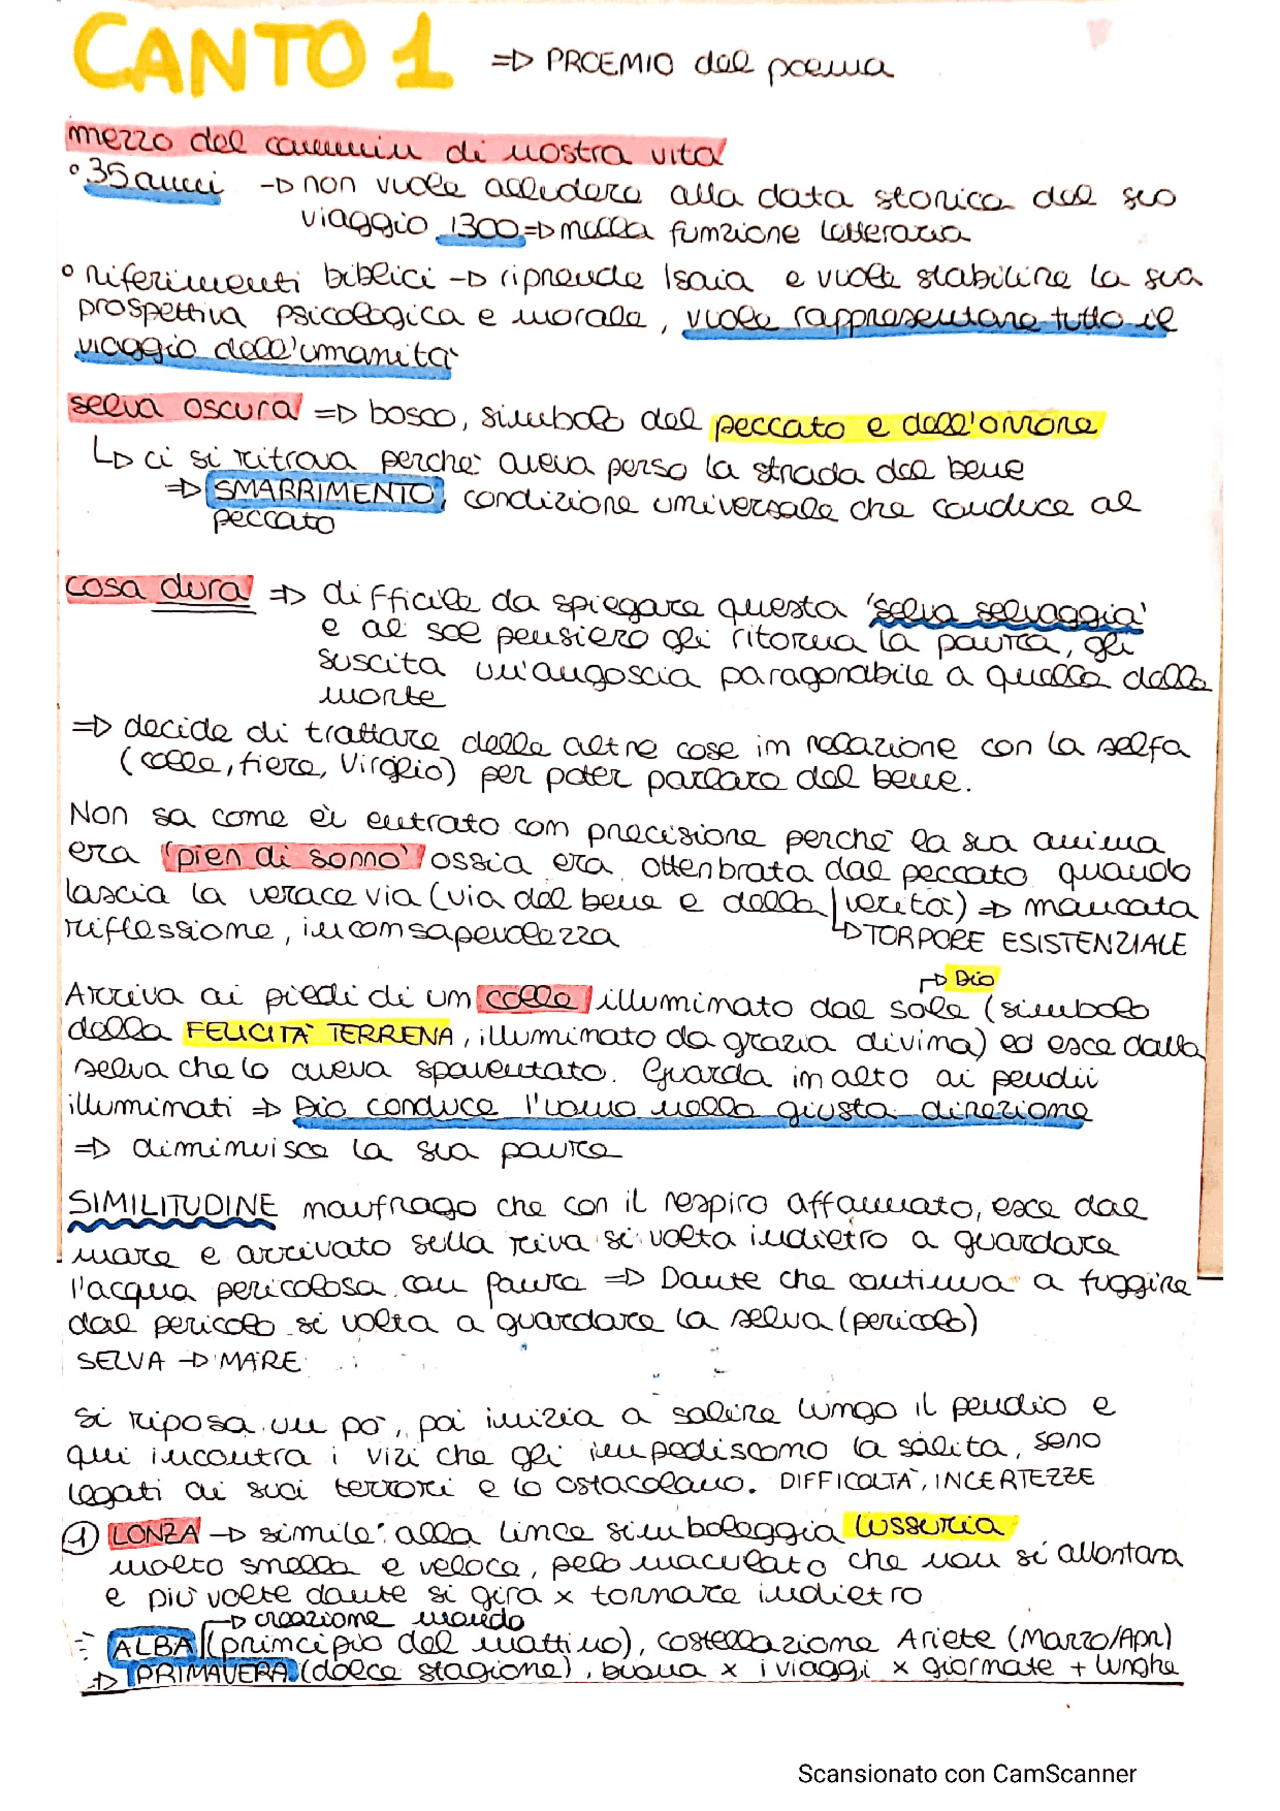 CANTO 1 => PROEMIO del poema
mezzo del cammin di nostra vita
° 35 anni -> non vuole alludere alla data storica del suo
viaggio 1300 => nella funzione letteraria
° riferimenti biblici -> riprende Isaia e vuole stabilire la sua
prospettiva psicologica e morale, vuole rappresentare tutto il
viaggio dell'umanità
selva oscura => bosco, simbolo del peccato e dell'orrore
↳ ci si ritrova perchè aveva perso la strada del bene
=> SMARRIMENTO, condizione universale che conduce al
peccato
cosa dura => difficile da spiegare questa 'selva selvaggia'
e al sol pensiero gli ritorna la paura, gli
suscita un'angoscia paragonabile a quella della
morte
=> decide di trattare delle altre cose in relazione con la selfa
(colle, fiere, Virgilio) per poter parlare del bene.
Non sa come ci è entrato con precisione perchè la sua anima
era 'pien di sonno' ossia era ottenbrata dal peccato quando
lascia la verace via (via del bene e della verità) => mancata
riflessione, inconsapevolezza ↳ TORPORE ESISTENZIALE
↱ Dio
Arriva ai piedi di un colle illuminato dal sole (simbolo
della FELICITÀ TERRENA, illuminato da grazia divina) ed esce dalla
selva che lo aveva spaventato. Guarda in alto ai pendii
illuminati => Dio conduce l'uomo nella giusta direzione
=> diminuisce la sua paura
SIMILITUDINE naufrago che con il respiro affannato, esce dal
mare e arrivato sulla riva si volta indietro a guardare
l'acqua pericolosa con paura => Dante che continua a fuggire
dal pericolo si volta a guardare la selva (pericolo)
SELVA -> MARE
Si riposa un po', poi inizia a salire lungo il pendio e
qui incontra i vizi che gli impediscono la salita, sono
legati ai suoi terrori e lo ostacolano. DIFFICOLTÀ, INCERTEZZE
① LONZA -> simile alla lince simboleggia lussuria
molto snella e veloce, pelo maculato che non si allontana
e più volte dante si gira x tornare indietro
↱ creazione mondo
ALBA (principio del mattino), costellazione Ariete (Marzo/Apr)
=> PRIMAVERA (dolce stagione), buona x i viaggi x giornate + lunghe
Scansionato con CamScanner